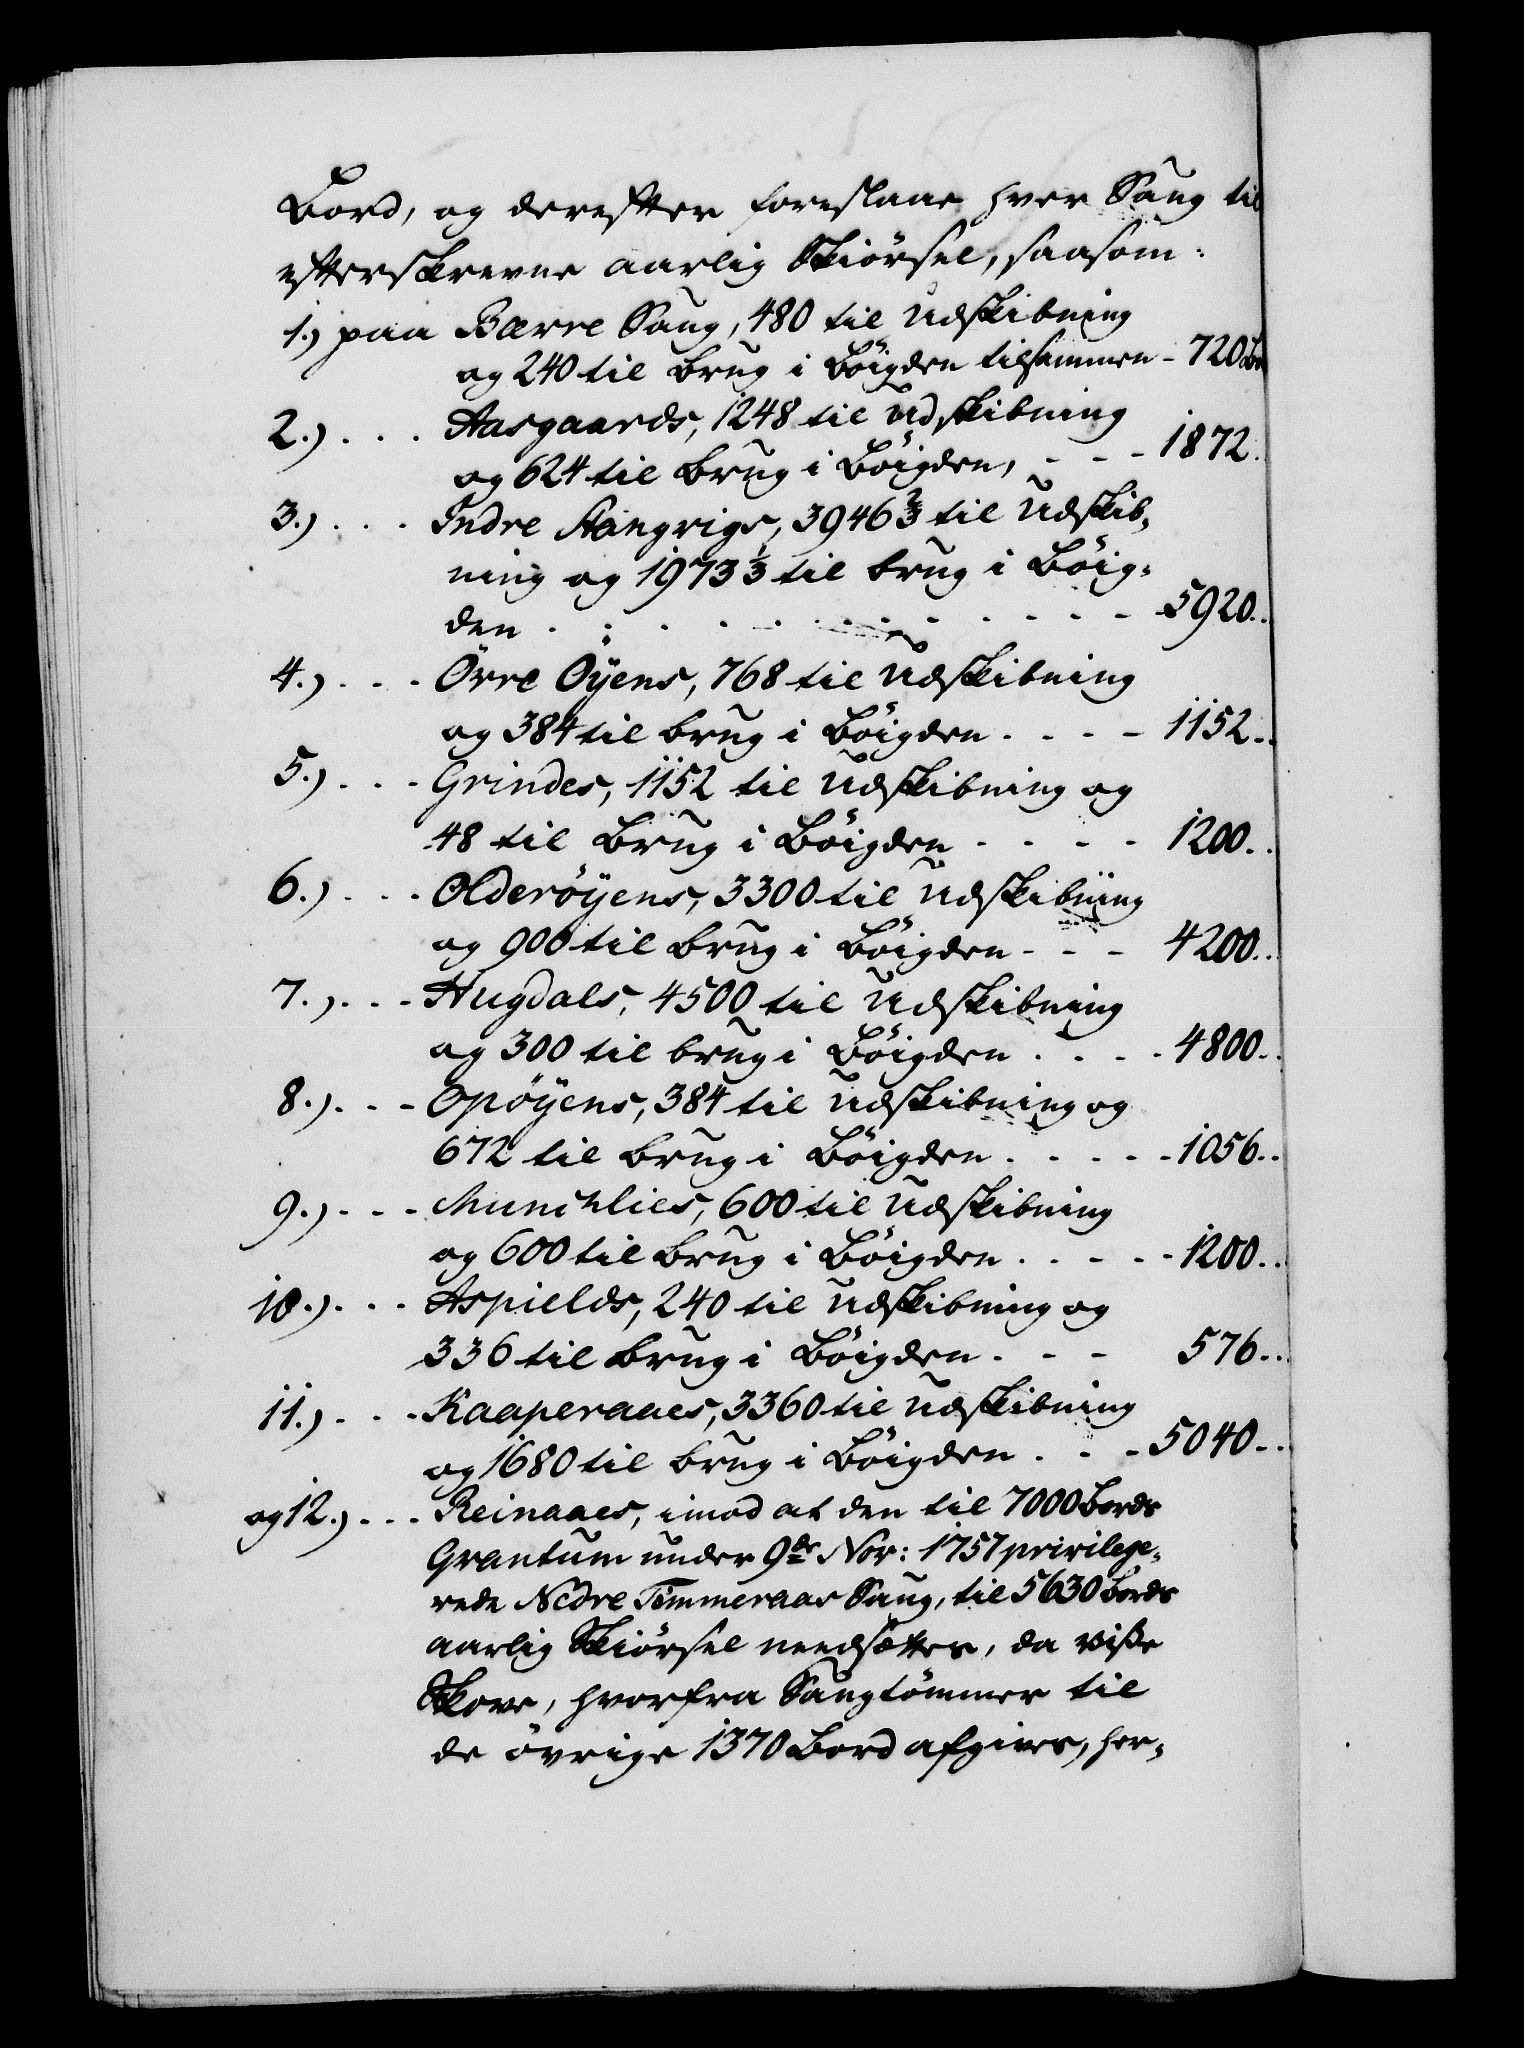 Bord, og derefter foreslaae hver Saug til
efterskrevne aarlig Skiörsel, saasom:
1.) paa Bærre Saug, 480 til Udskibning
og 240 til brug i Böigden tilsammen - 720 Bor
2.) . . . Aasgaards, 1248 til Udskibning
og 624 til brug i Böigden, - - - 1872.
3.) . . . Indre Stangrigs, 3946 2/3 til Udskib-
ning og 1973 1/3 til brug i Böig-
den . . . . . . . . . . . 5920..
4.) . . . Örre Öyens, 768 til Udskibning
og 384 til brug i Böigden . . . - 1152..
5.) . . . Grindes, 1152 til Udskibning og
48 til Brug i Böigden . . . . 1200..
6.) . . . Olderöyens, 3300 til Udskibning
og 900 til brug i Böigden - - - 4200..
7.) . . . Hugdals, 4500 til Udskibning
og 300 til brug i Böigden . . . . 4800..
8.) . . . Opöyens, 384 til Udskibning og
672 til brug i Böigden . . . . . 1056..
9.) . . . Munchlies, 600 til Udskibning
og 600 til brug i Böigden . . . . . 1200..
10.) . . . Aspields, 240 til Udskibning og
336 til brug i Böigden . - - 576...
11.) . . . Kaaperaaes, 3360 til Udskibning
og 1680 til brug i Böigden . . . 5040..
og 12.) . . . Reinaaes, imod at den til 7000 Bords
Qvantum under 9de Nov: 1757 privilege-
rede Nedre Timmeraas Saug, til 5630 Bords
aarlig Skiörsel needsættes, da viße
Skove, hvorfra Saugtömmer til
de övrige 1370 Bord afgives, her-